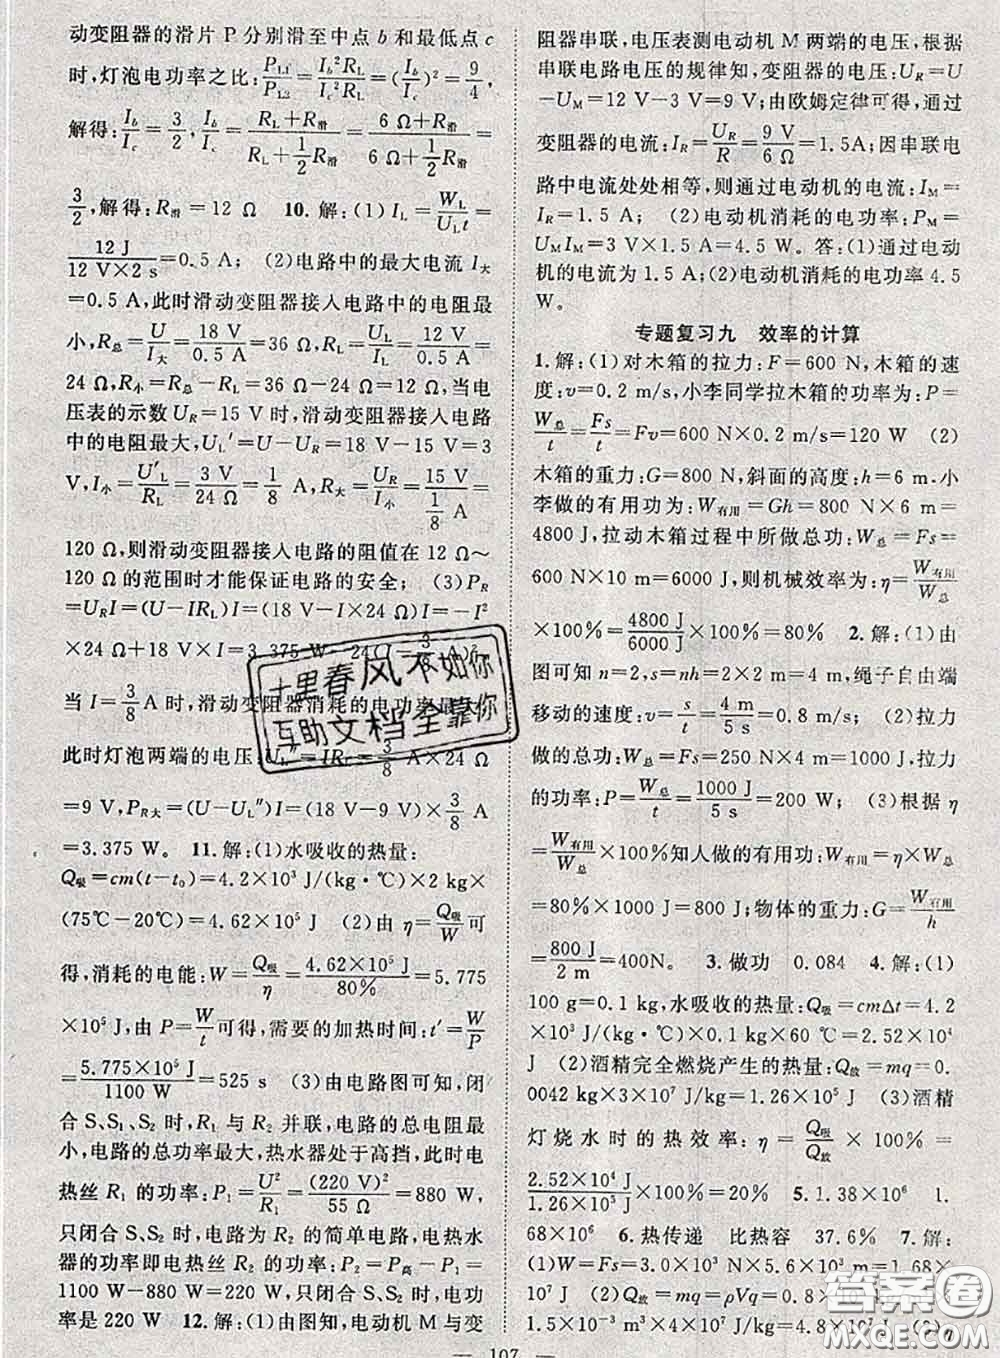 动变阻器的滑片 P 分别滑至中点 b 和最低点 c
时,灯泡电功率之比:P_{L1}/P_{L2}=I_b²R_L/I_c²R_L=(I_b/I_c)²=9/4
解得:I_b/I_c=3/2,I_b/I_c=(R_L+R_滑)/(R_L+½R_滑)=(6 Ω+R_滑)/(6 Ω+½R_滑)=
3/2,解得:R_滑=12 Ω 10. 解:(1)I_L=W_L/U_Lt=
12 J/(12 V×2 s)=0.5 A;(2)电路中的最大电流 I_大
=0.5 A,此时滑动变阻器接入电路中的电阻最
小,R_总=U/I_大=18 V/0.5 A=36 Ω,R_L=U_L/I_L=12 V/0.5 A=
24 Ω,R_小=R_总-R_L=36 Ω-24 Ω=12 Ω,当电
压表的示数 U_R=15 V 时,滑动变阻器接入电路
中的电阻最大,U_L′=U-U_R=18 V-15 V=3
V,I_小=U′_L/R_L=3 V/24 Ω=1/8 A,R_大=U_R/I_小=15 V/(1/8 A)=
120 Ω,则滑动变阻器接入电路的阻值在 12 Ω~
120 Ω 的范围时才能保证电路的安全;(3)P_R
=U_RI=(U-IR_L)I=(18 V-I×24 Ω)I=-I²
×24 Ω+18 V×I=3.375 W-24(I-3/8 A)²
当 I=3/8 A 时,滑动变阻器消耗的电功率最大
此时灯泡两端的电压:U_L″=IR_L=3/8 A×24 Ω
=9 V,P_{R大}=(U-U_L″)I=(18 V-9 V)×3/8 A
=3.375 W。 11. 解:(1)水吸收的热量:
Q_吸=cm(t-t₀)=4.2×10³ J/(kg·℃)×2 kg×
(75℃-20℃)=4.62×10⁵ J (2)由 η=Q_吸/W 可
得,消耗的电能:W=Q_吸/η=4.62×10⁵ J/80%=5.775
×10⁵ J,由 P=W/t 可得,需要的加热时间:t′=W/P
=5.775×10⁵ J/1100 W=525 s (3)由电路图可知,闭
合 S、S₁、S₂ 时,R₁ 与 R₂ 并联,电路的总电阻最
小,电路的总功率最大,热水器处于高挡,此时电
热丝 R₁ 的功率:P₁=U²/R₁=(220 V)²/55 Ω=880 W,
只闭合 S、S₂ 时,电路为 R₂ 的简单电路,电热水
器的功率即电热丝 R₂ 的功率:P₂=P_高-P₁=
1100 W-880 W=220 W,只闭合 S、S₂ 时,电功
率是 220 W 12. 解:(1)由图知,电动机 M 与变
阻器串联,电压表测电动机 M 两端的电压,根据
串联电路电压的规律知,变阻器的电压:U_R=U
-U_M=12 V-3 V=9 V;由欧姆定律可得,通过
变阻器的电流:I_R=U_R/R=9 V/6 Ω=1.5A;因串联电
路中电流处处相等,则通过电动机的电流:I_M=
I_R=1.5 A; (2)电动机消耗的电功率:P_M=
U_MI_M=3 V×1.5 A=4.5 W。答:(1)通过电动
机的电流为 1.5 A;(2)电动机消耗的电功率 4.5
W。
专题复习九 效率的计算
1. 解:(1)对木箱的拉力:F=600 N,木箱的速
度:v=0.2 m/s,小李同学拉木箱的功率为:P=
W_总/t=Fs/t=Fv=600 N×0.2 m/s=120 W (2)
木箱的重力:G=800 N,斜面的高度:h=6 m,小
李做的有用功为:W_有用=Gh=800 N×6 m=
4800 J,拉动木箱过程中所做总功:W_总=Fs=
600 N×10 m=6000 J,则机械效率为:η=W_有用/W_总
×100%=4800 J/6000 J×100%=80% 2. 解:(1)由
图可知 n=2,s=nh=2×2 m=4 m,绳子自由端
移动的速度:v=s/t=4 m/5 s=0.8 m/s;(2)拉力
做的总功:W_总=Fs=250 N×4 m=1000 J,拉力
的功率:P=W_总/t=1000 J/5 s=200 W; (3)根据 η
=W_有用/W_总×100%知人做的有用功:W_有用=η×W_总
=80%×1000 J=800 J;物体的重力:G=W_有用/h
=800 J/2 m=400N。 3. 做功 0.084 4. 解:(1)
100 g=0.1 kg,水吸收的热量:Q_吸=cmΔt=4.2
×10³ J/(kg·℃)×0.1 kg×60 ℃=2.52×10⁴
J (2)酒精完全燃烧产生的热量:Q_放=mq=0.
0042 kg×3×10⁷ J/kg=1.26×10⁵ J (3)酒精
灯烧水时的热效率:η=Q_吸/Q_放×100%=
2.52×10⁴ J/1.26×10⁵ J×100%=20% 5. 1.38×10⁶ 1.
68×10⁶ 6. 热传递 比热容 37.6% 7. 解:
(1)W=Fs=3.0×10³ N×5.6×10³ m=1.68×
10⁷ J (2)Q_放=mq=ρVq=0.8×10³ kg/m³×
1.5×10⁻³ m³×4×10⁷ J/kg=4.8×10⁷ J
十里春风不如你
互助文档全靠你
答案圈
MXQE.COM
— 107 —